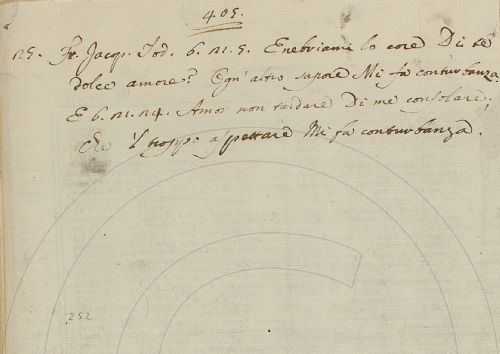 405.
25. Fr. Jacop. Tod. 6. 21. 5. Enebriami lo core Di te
dolce amore: Ogn' altro sapore Mi fa conturbanza.
E 6. 21. 24. Amor non tardare Di me consolare,
Che 'l troppo aspettare Mi fa conturbanza.
252